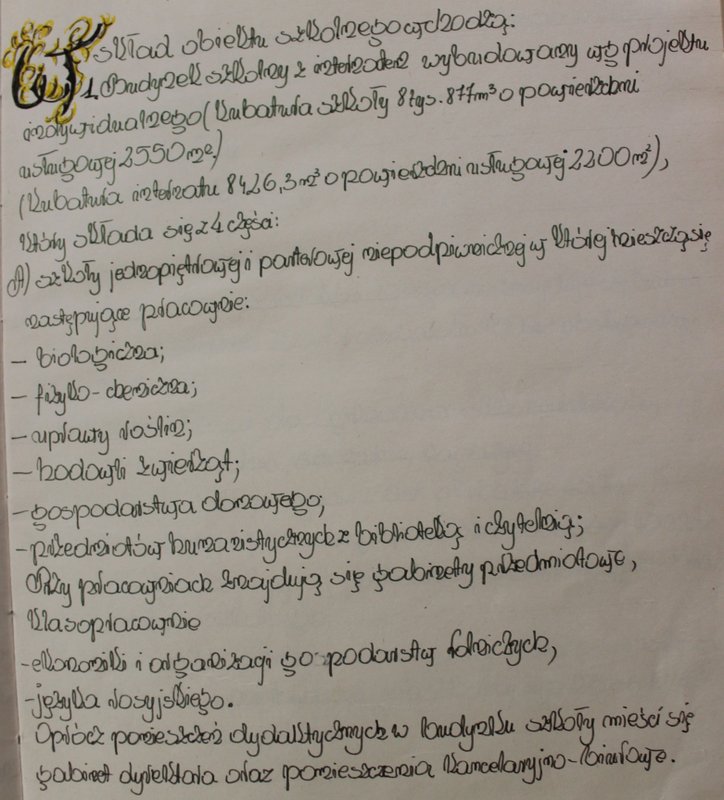 W skład obiektu szkolnego wchodzą:
1. Budynek szkolny z internatem wybudowany wg projektu
indywidualnego (kubatura szkoły 8 tys. 877m³ o powierzchni
usługowej 2550m²)
(kubatura internatu 8426,3m³ o powierzchni usługowej 2200m²),
który składa się z 4 części:
A) szkoły jednopiętrowej i parterowej niepodpiwniczonej w której mieszczą się
następujące pracownie:
- biologiczna;
- fizyko-chemiczna;
- uprawy roślin;
- hodowli zwierząt;
- gospodarstwa domowego;
- przedmiotów humanistycznych z biblioteką i czytelnią;
Przy pracowniach znajdują się gabinety przedmiotowe,
klasopracownie
- ekonomiki i organizacji gospodarstw rolniczych,
- języka rosyjskiego.
Oprócz pomieszczeń dydaktycznych w budynku szkoły mieści się
gabinet dyrektora oraz pomieszczenia kancelaryjno-biurowe.